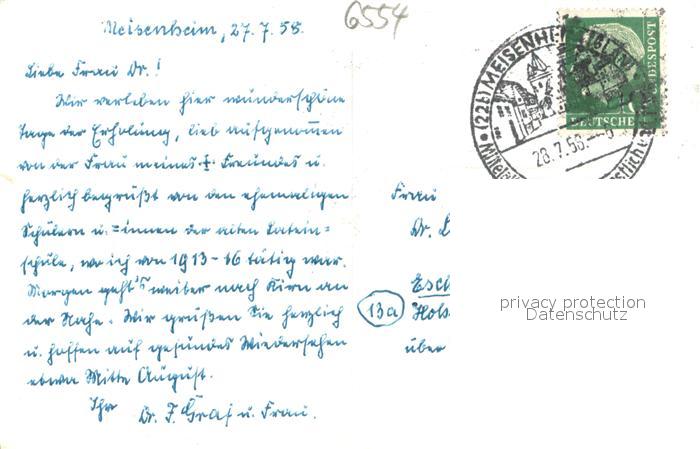 Meisenheim, 27.7.58.
6554
Liebe Frau Dr.!
Wir verleben hier wunderschöne
Tage der Erholung, lieb aufgenommen
von der Frau meines ✝ Freundes u.
herzlich begrüßt von den ehemaligen
Schülern u. =innen der alten Latein=
schule, wo ich von 1913-16 tätig war.
Morgen geht's weiter nach Kirn an
der Nahe. Wir grüßen Sie herzlich
u. hoffen auf gesundes Wiedersehen
etwa Mitte August.
Ihr
Dr. F. Graf u. Frau.
(22b) MEISENHEIM
28.7.58
DEUTSCHE BUNDESPOST
Frau
Dr. L
Esch
13a Hols
über
privacy protection
Datenschutz